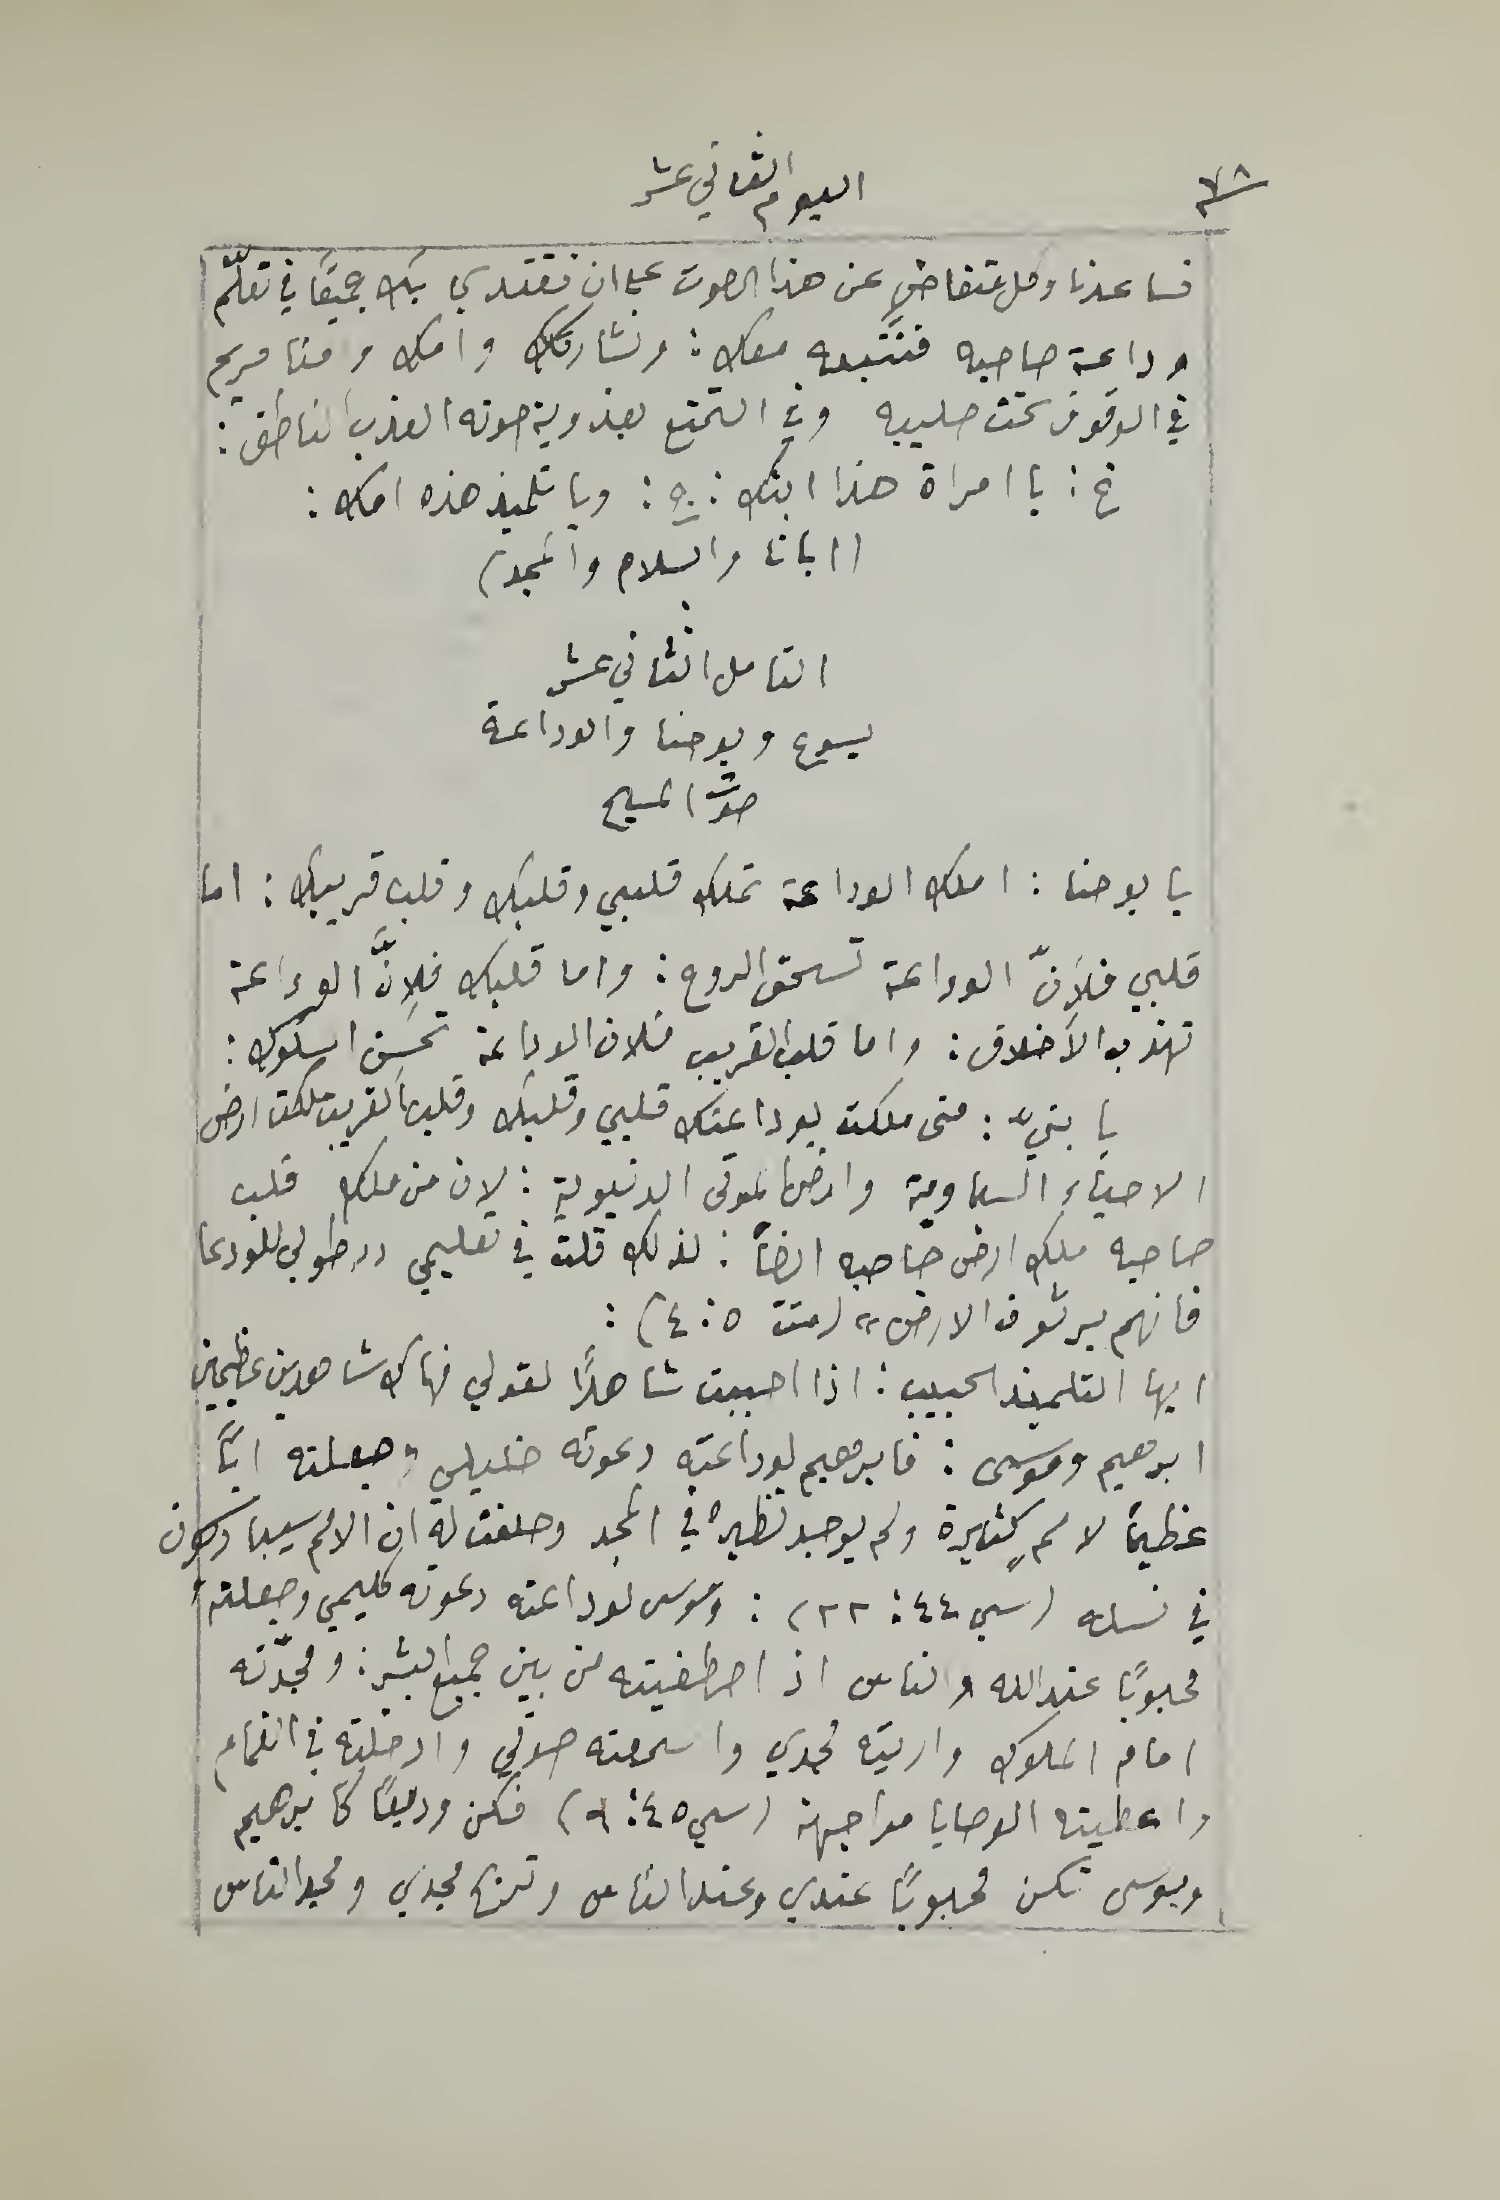 ٧٨
اليوم الثاني عشر
فساعدنا وكل متغاضٍ عن هذا الصوت على ان نقتدي بك جميعًا في تعلّم
وداعة صاحبه فنتبعه معك : ونشاركك وامك وامنا مريم
في الوقوف تحت صليبه وفي التمتع بعذوبة صوته العذب الناطق :
خ : يا امراة هذا ابنك : ج : ويا تلميذ هذه امك :
(ابانا والسلام والمجد)
التامل الثاني عشر
يسوع ويوحنا والوداعة
صوت المسيح
يا يوحنا : املك الوداعة تملك قلبي وقلبك وقلب قريبك : اما
قلبي فلأنّ الوداعة تسحق الروح : واما قلبك فلأنَّ الوداعة
تهذب الأخلاق : واما قلب القريب فلان الوداعة تحسن السلوك :
يا بنيّ : متى ملكت بوداعتك قلبي وقلبك وقلب القريب ملكت ارض
الاحياء السماوية وارض الموتى الدنيوية : لان من ملك قلب
صاحبه ملك ارض صاحبه ايضاً : لذلك قلت في تعليمي "طوبى للودعا
فانهم يرثون الارض" (متت ٥ : ٤) :
ايها التلميذ الحبيب : اذا احببت شاهدًا لقولي فهاك شاهدين عظيمين
ابرهيم وموسى : فابرهيم لوداعته دعوته خليلي وجعلته ابًا
عظيمًا لاممٍ كثيرة ولم يوجد نظيره في المجد وحلفت له ان الامم سيباركون
في نسله (سي ٤٤ : ٢٢) : وموسى لوداعته دعوته كليمي وجعلته
محبوبًا عند الله والناس اذ اصطفيته من بين جميع البشر : ومجدّته
امام الملوك واريته مجدي واسمعته صوتي وادخلته في الغمام
واعطيته الوصايا مواجهة (سي ٤٥ : ٦) فكن وديعًا كابرهيم
وموسى تكن محبوبًا عندي وعند الناس وترث مجدي ومجد الناس